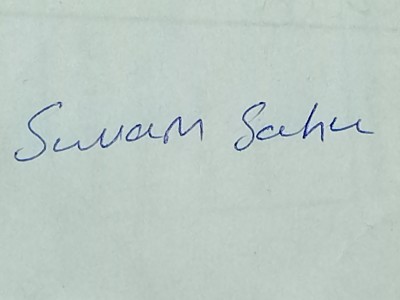 Suvam Sahu